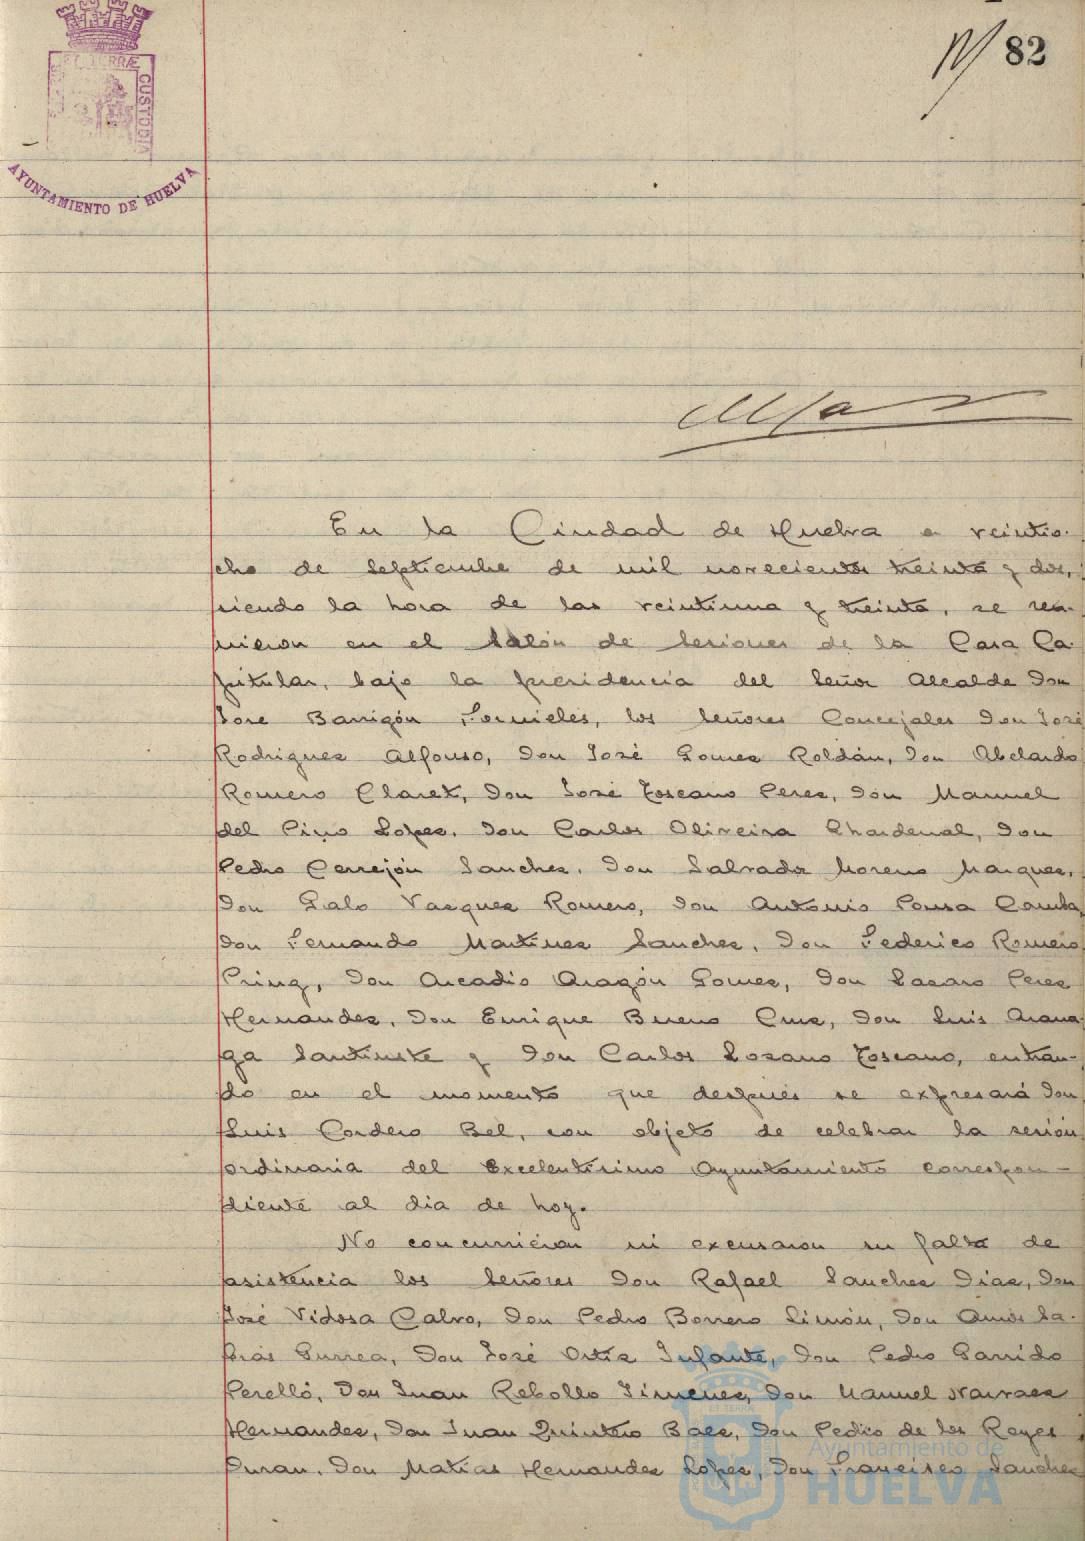 82
ET TERRÆ
CUSTODIA
AYUNTAMIENTO DE HUELVA
En la Ciudad de Huelva a veintio-
cho de Septiembre de mil novecientos treinta y dos,
siendo la hora de las veintiuna y treinta, se reu-
nieron en el Salón de Sesiones de la Casa Ca-
pitular, bajo la presidencia del Señor Alcalde Don
José Barrigón Fornieles, los Señores Concejales Don José
Rodriguez Alfonso, Don José Gomez Roldán, Don Abelardo
Romero Claret, Don José Toscano Perez, Don Manuel
del Pino Lopez, Don Carlos Oliveira Chardenal, Don
Pedro Cerrejón Sanchez, Don Salvador Moreno Marquez,
Don Galo Vazquez Romero, Don Antonio Pousa Camba,
Don Fernando Martinez Sanchez, Don Federico Romero
Pring, Don Arcadio Aragón Gomez, Don Lazaro Perez
Hernandez, Don Enrique Bueno Cruz, Don Luis Arana-
ga Santiuste y Don Carlos Lozano Toscano, entran-
do en el momento que después se expresará Don
Luis Cordero Bel, con objeto de celebrar la sesión
ordinaria del Excelentísimo Ayuntamiento correspon-
diente al dia de hoy.
No concurrieron ni excusaron su falta de
asistencia los Señores Don Rafael Sanchez Diaz, Don
José Vidosa Calvo, Don Pedro Borrero Limón, Don Amós Sa-
brás Gurrea, Don José Ortiz Infante, Don Pedro Garrido
Perelló, Don Juan Rebollo Jimenez, Don Manuel Narvaez
Hernandez, Don Juan Quintero Baez, Don Pedro de los Reyes
Duran, Don Matías Hernandez Lopez, Don Francisco Sanchez
Ayuntamiento de
HUELVA